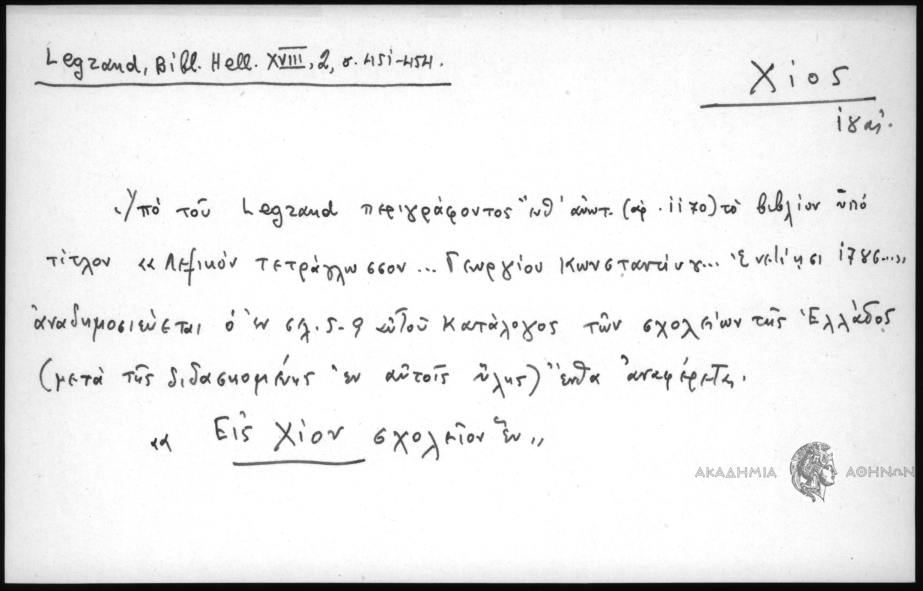 Legrand, Bibl. Hell. XVIII, 2, σ. 451-454.
Χίος
1786.
Ὑπό τοῦ Legrand περιγράφοντος ἐνθ' ἀνωτ. (ἀρ. 1170) τό βιβλίον ὑπό
τίτλον «Λεξικόν τετράγλωσσον... Γεωργίου Κωνσταντίνου... Ἐνετίησι 1786...»
ἀναδημοσιεύεται ὁ ἐν σελ. 5-9 αὐτοῦ κατάλογος τῶν σχολείων τῆς Ἑλλάδος
(μετά τῆς διδασκομένης ἐν αὐτοῖς ὕλης) ἔνθα ἀναφέρεται.
« Εἰς Χίον σχολεῖον ἕν »
ΑΚΑΔΗΜΙΑ ΑΘΗΝΩΝ